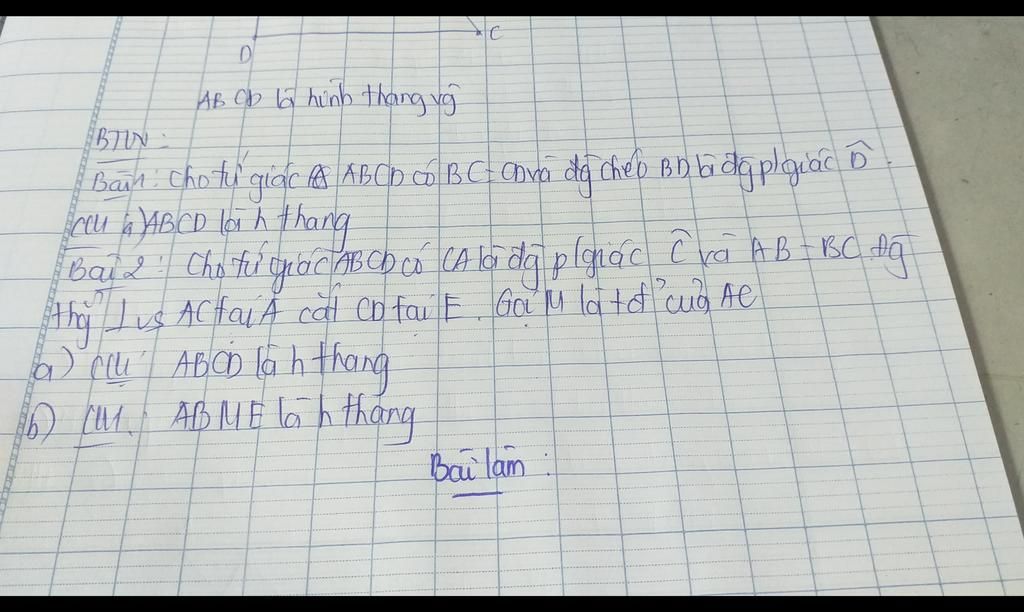 D C
ABCD là hình thang vg
BTVN:
Bài 1: Cho tứ giác ABCD có BC = CD và đg chéo BD là đg p/giác D̂.
CM ABCD là h thang
Bài 2: Cho tứ giác ABCD có CA là đg p/giác Ĉ và AB = BC. Đg
thg ⊥ vs AC tại A cắt CD tại E. Gọi M là tđ của AC
a) CM: ABCD là h thang
b) CM: ABME là h thang
Bài làm: